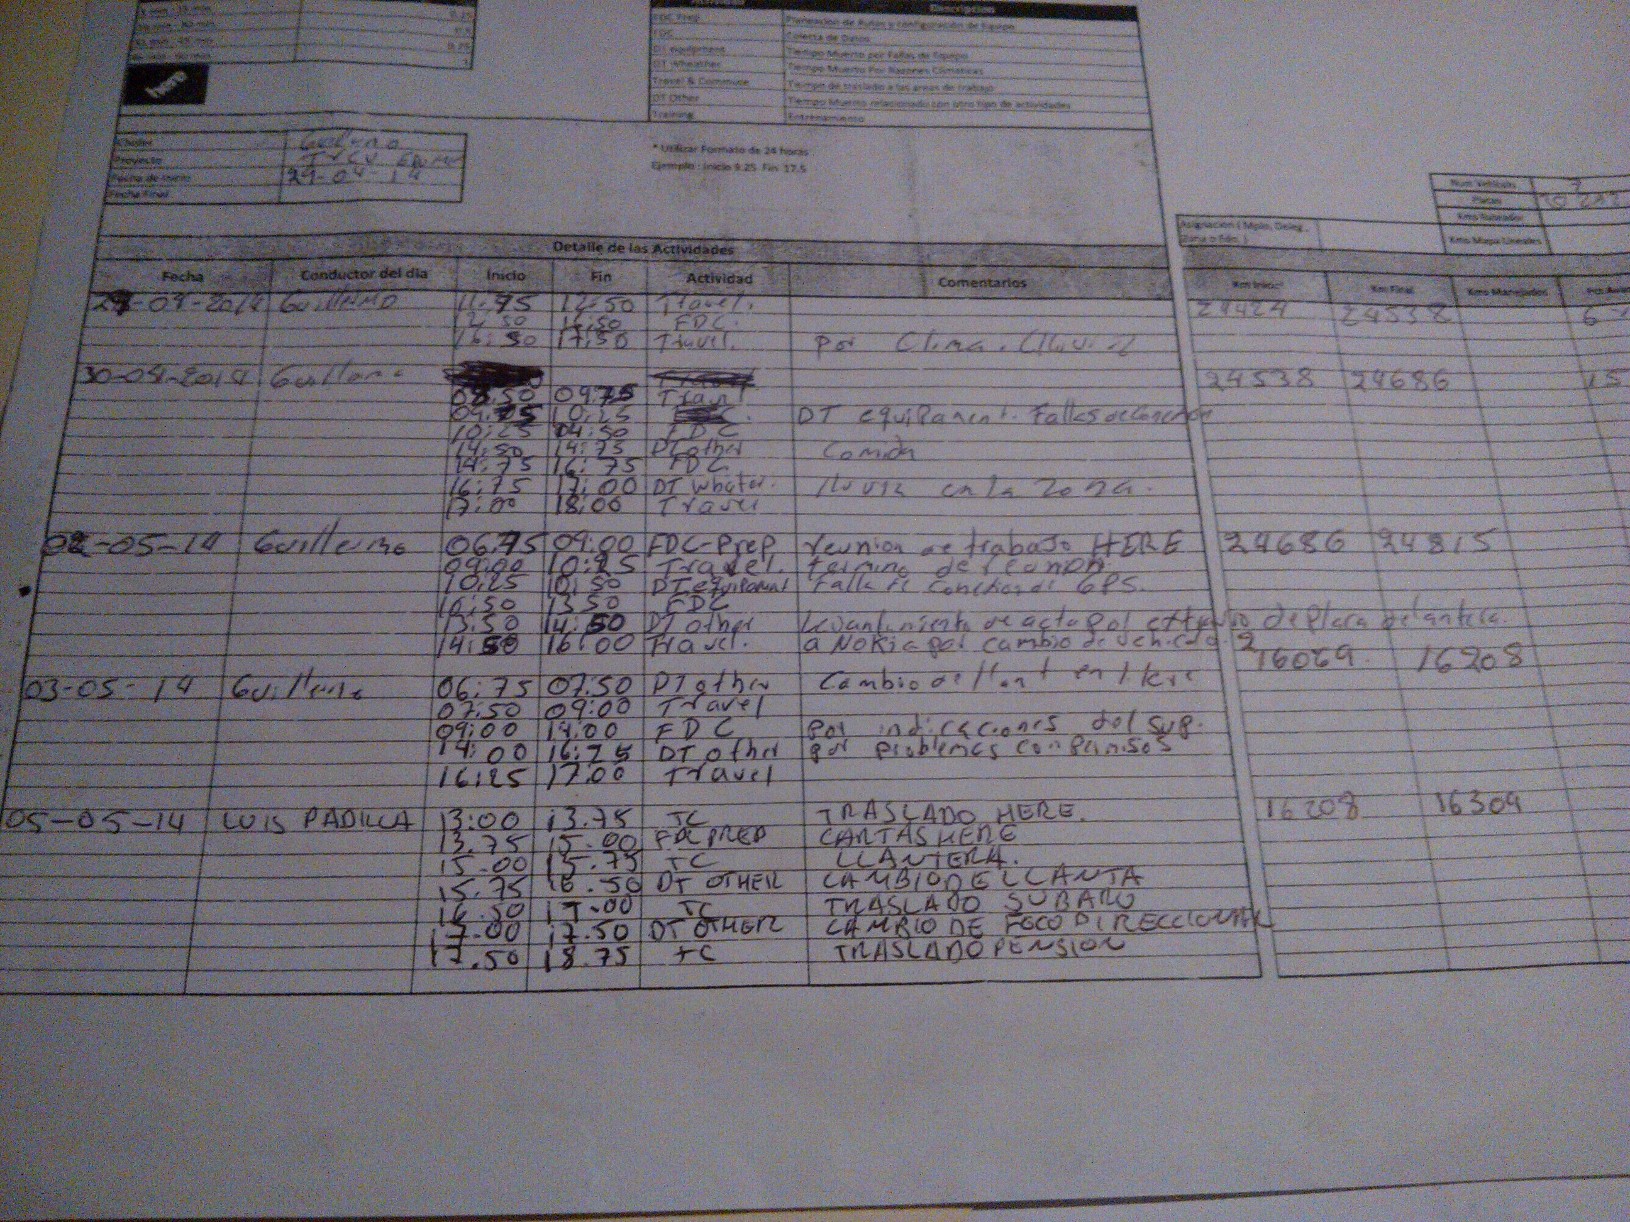 Description
FDC Prep Planeacion de Rutas y configuración de Equipo
FDC Colecta de Datos
DT Equipment Tiempo Muerto por Fallas de Equipo
DT Wheather Tiempo Muerto Por Razones Climaticas
Travel & Commute Tiempo de traslado a las areas de trabajo
DT Other Tiempo Muerto relacionado con otro tipo de actividades
Training Entrenamiento
here
Cluster
Proyecto
Fecha de Inicio 29-04-14
Fecha Final
* Utilizar Formato de 24 horas
Ejemplo : Inicio 9.25 Fin 17.5
Num Vehiculo 7
Placas
Kms Ruteados
Kms Mapa Lineales
Asignacion ( Mpio, Deleg.,
Detalle de las Actividades
Fecha Conductor del dia Inicio Fin Actividad Comentarios Km Inicial Km Final Kms Manejados
-04-2014 Guillermo 11.75 12:50 Travel. 24424 24538
12:50 16:50 FDC.
16:50 17:50 Travel. Por Clima.
30-04-2014 Guillermo 24538 24686
08.50 09.75 Travel
09.75 10:25 DT equipament. Fallas de
10:25 04:50 FDC
14:50 14:75 DT other Comida
14:75 16:75 FDC
16:75 17:00 DT lluvia en la zona.
17:00 18:00 Travel
02-05-14 Guillermo 06.75 09:00 FDC-Prep reunion de trabajo HERE 24686 24815
09:00 10:25 Travel. termino de reunion
10:25 10:50 DT Falla de GPS.
10:50 13:50 FDC
13:50 14:50 DT other levantamiento de acta por de placa delantera.
14:50 16:00 travel. a Nokia por cambio de vehiculo
16069 16208
03-05-14 Guillermo 06:75 07:50 DT other Cambio de en
07:50 09:00 Travel
09:00 14:00 FDC por indicaciones del sup.
14:00 16:25 DT other por problemas con permisos
16:25 17:00 Travel
05-05-14 LUIS PADILLA 13:00 13.75 TC TRASLADO HERE. 16208 16304
13.75 15.00 FDC PREP CARTAS HERE
15.00 15.75 TC LLANTERA.
15.75 16.50 DT OTHER CAMBIO DE LLANTA
16.50 17.00 TC TRASLADO SUBARU
17.00 17.50 DT OTHER CAMBIO DE FOCO DIRECCIONAL
17.50 18.75 TC TRASLADO PENSION